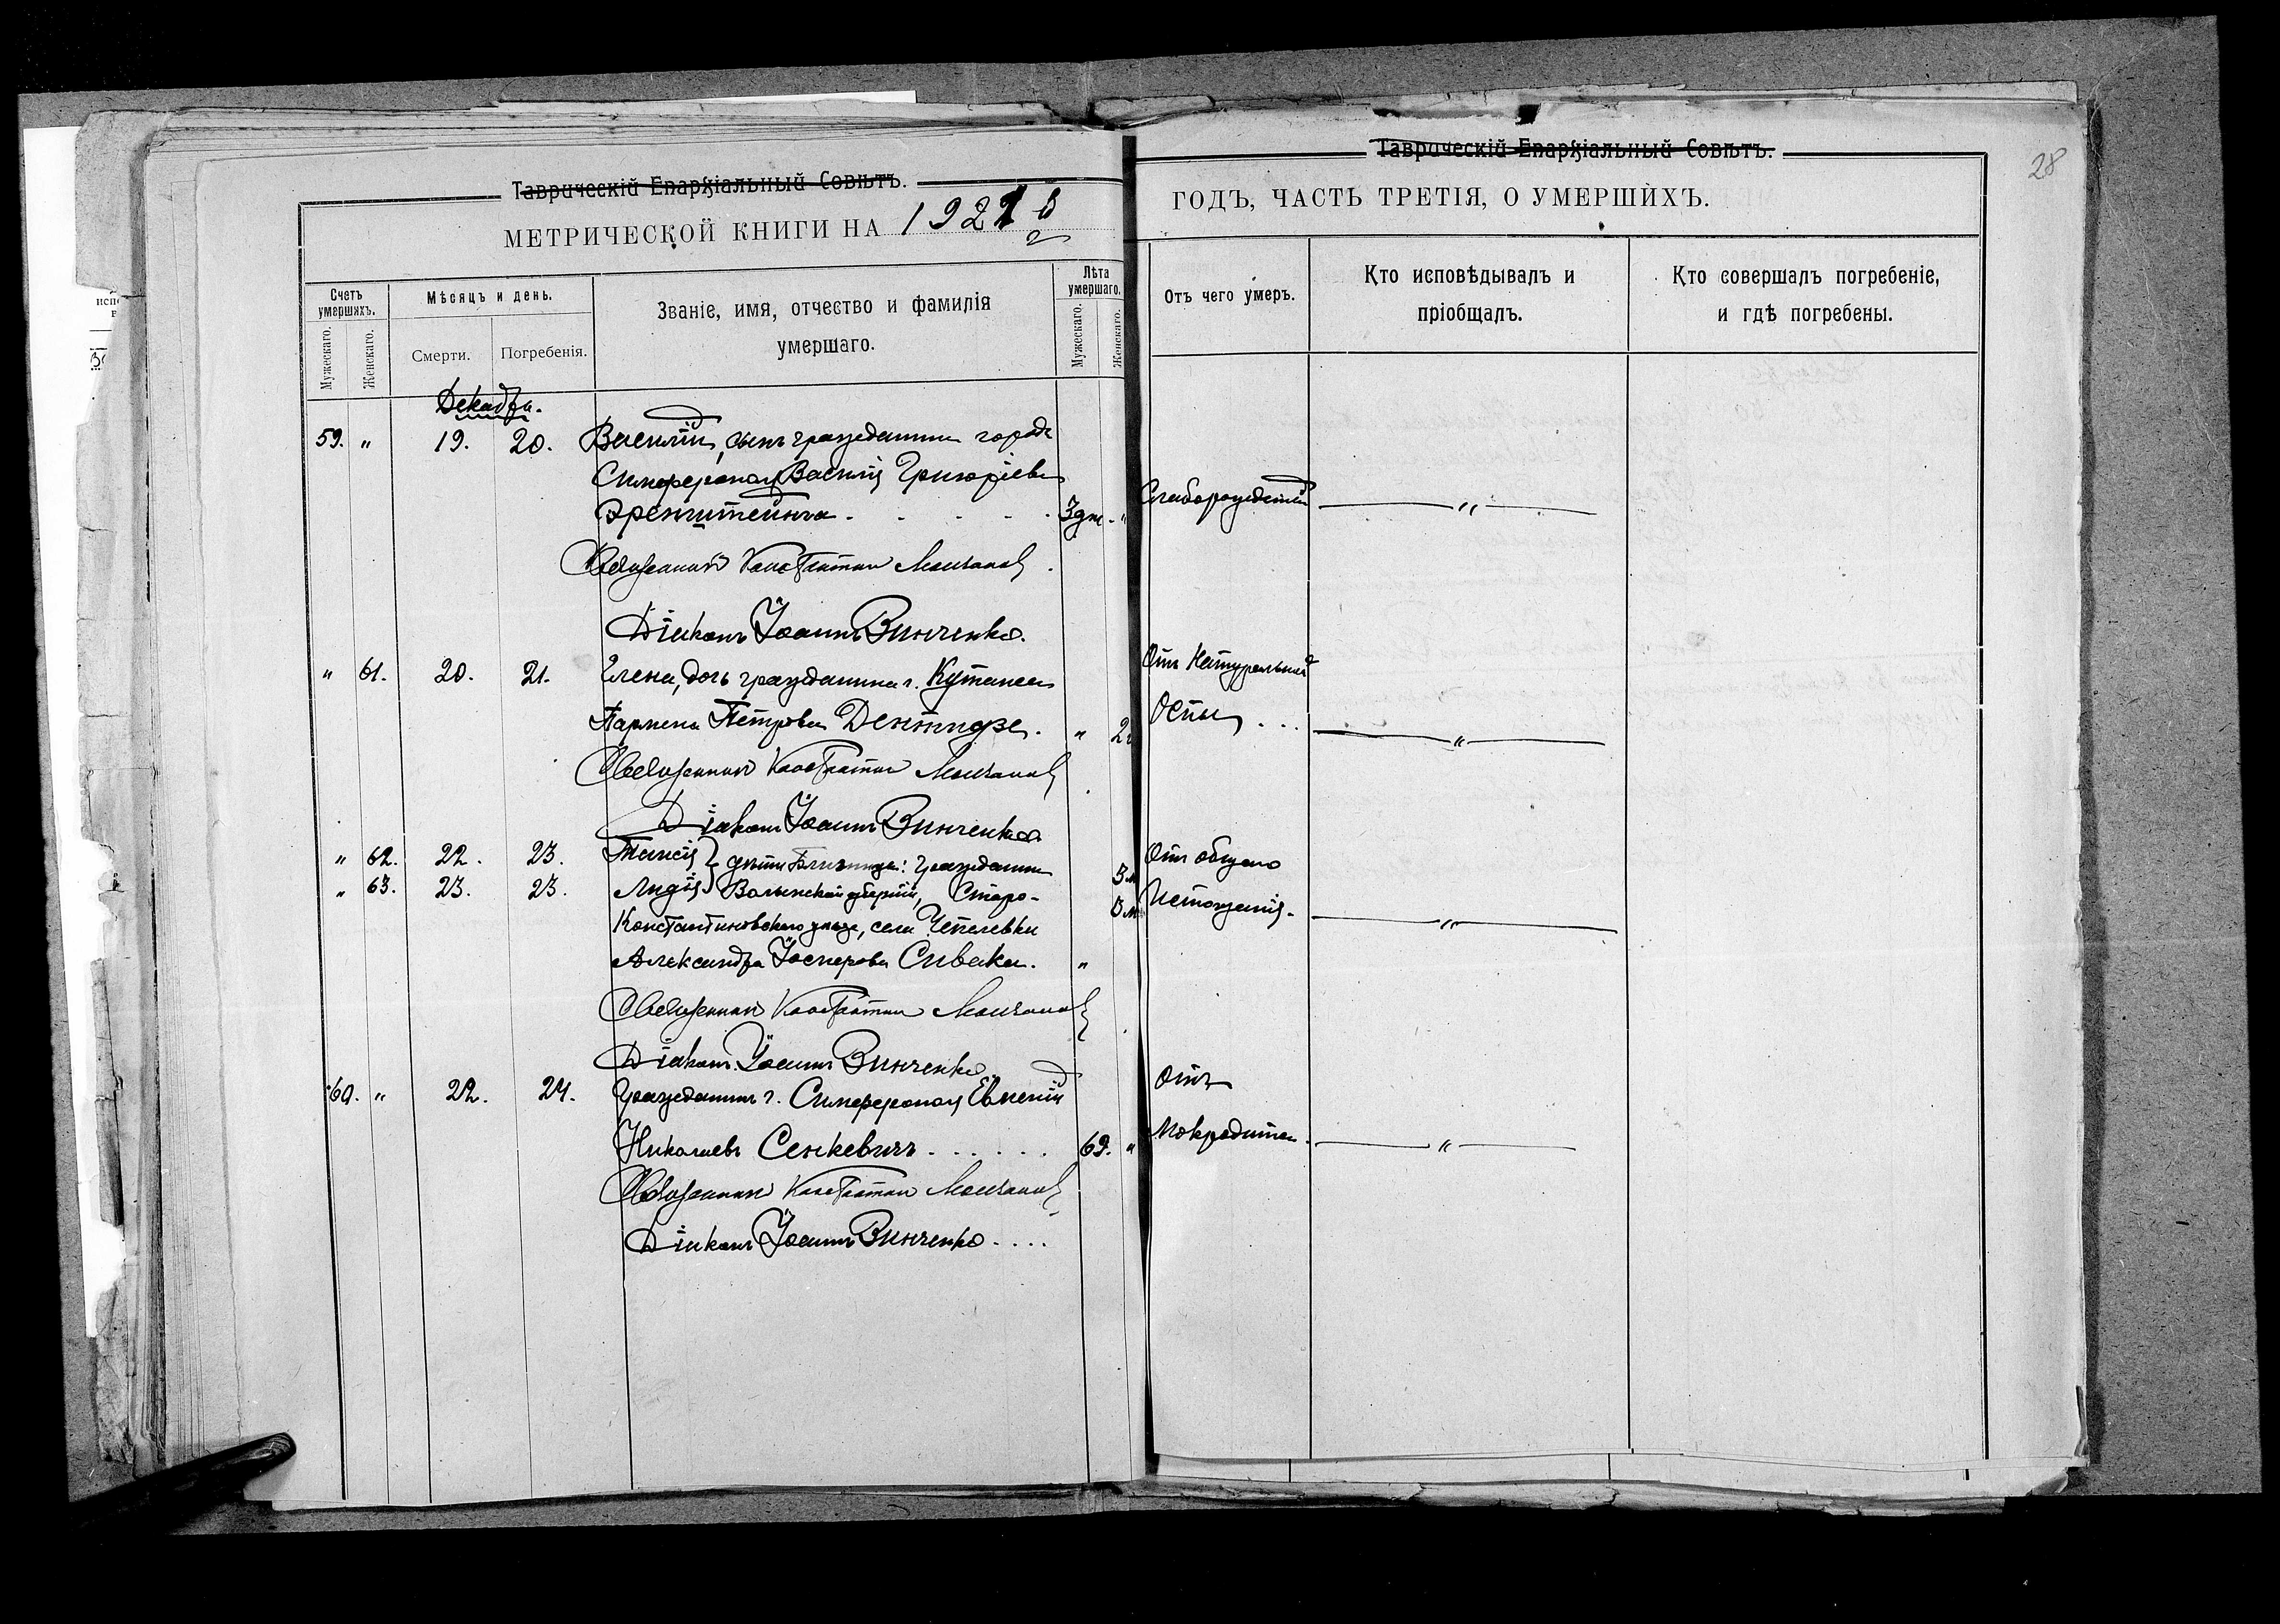 Таврическій Епархіальный Совѣтъ.
МЕТРИЧЕСКОЙ КНИГИ НА 1921
Счетъ умершихъ.
Мужескаго.
Женскаго.
Мѣсяцъ и день.
Смерти.
Погребенія.
Званіе, имя, отчество и фамилія
умершаго.
Лѣта
умершаго.
Мужескаго.
Женскаго.
Декабрь.
59. " 19. 20. Василій, сынъ гражданина города
Симферополя Василія Григоріева
Эренштейна. 3 дн. "
Священник Константин Молчанов
Діаконъ Іоаннъ Винченко.
" 61. 20. 21. Елена, дочь гражданина г. Кутаиса
Пармена Петрова . " 2
Священник Константин Молчанов
Діаконъ Іоаннъ Винченко
" 62. 22. 23. Таисія } дѣти близнецы: гражданина 3 м
" 63. 23. 23. Лидія } Волынской губерніи, Старо- 3 м
Константиновскаго уѣзда, села Чепелевки
Александра Іосифова Сивака. "
Священник Константин Молчанов
Діаконъ Іоаннъ Винченко
60. " 22. 24. Гражданинъ г. Симферополя Евгеній
Николаевъ Сенкевичъ 69. "
Священник Константин Молчанов
Діаконъ Іоаннъ Винченко
Таврическій Епархіальный Совѣтъ.
28
ГОДЪ, ЧАСТЬ ТРЕТІЯ, О УМЕРШИХЪ.
Отъ чего умеръ.
Кто исповѣдывалъ и
пріобщалъ.
Кто совершалъ погребеніе,
и гдѣ погребены.
"
Отъ Натуральной
Оспы
"
Отъ общаго
Истощенія.
"
Отъ
"